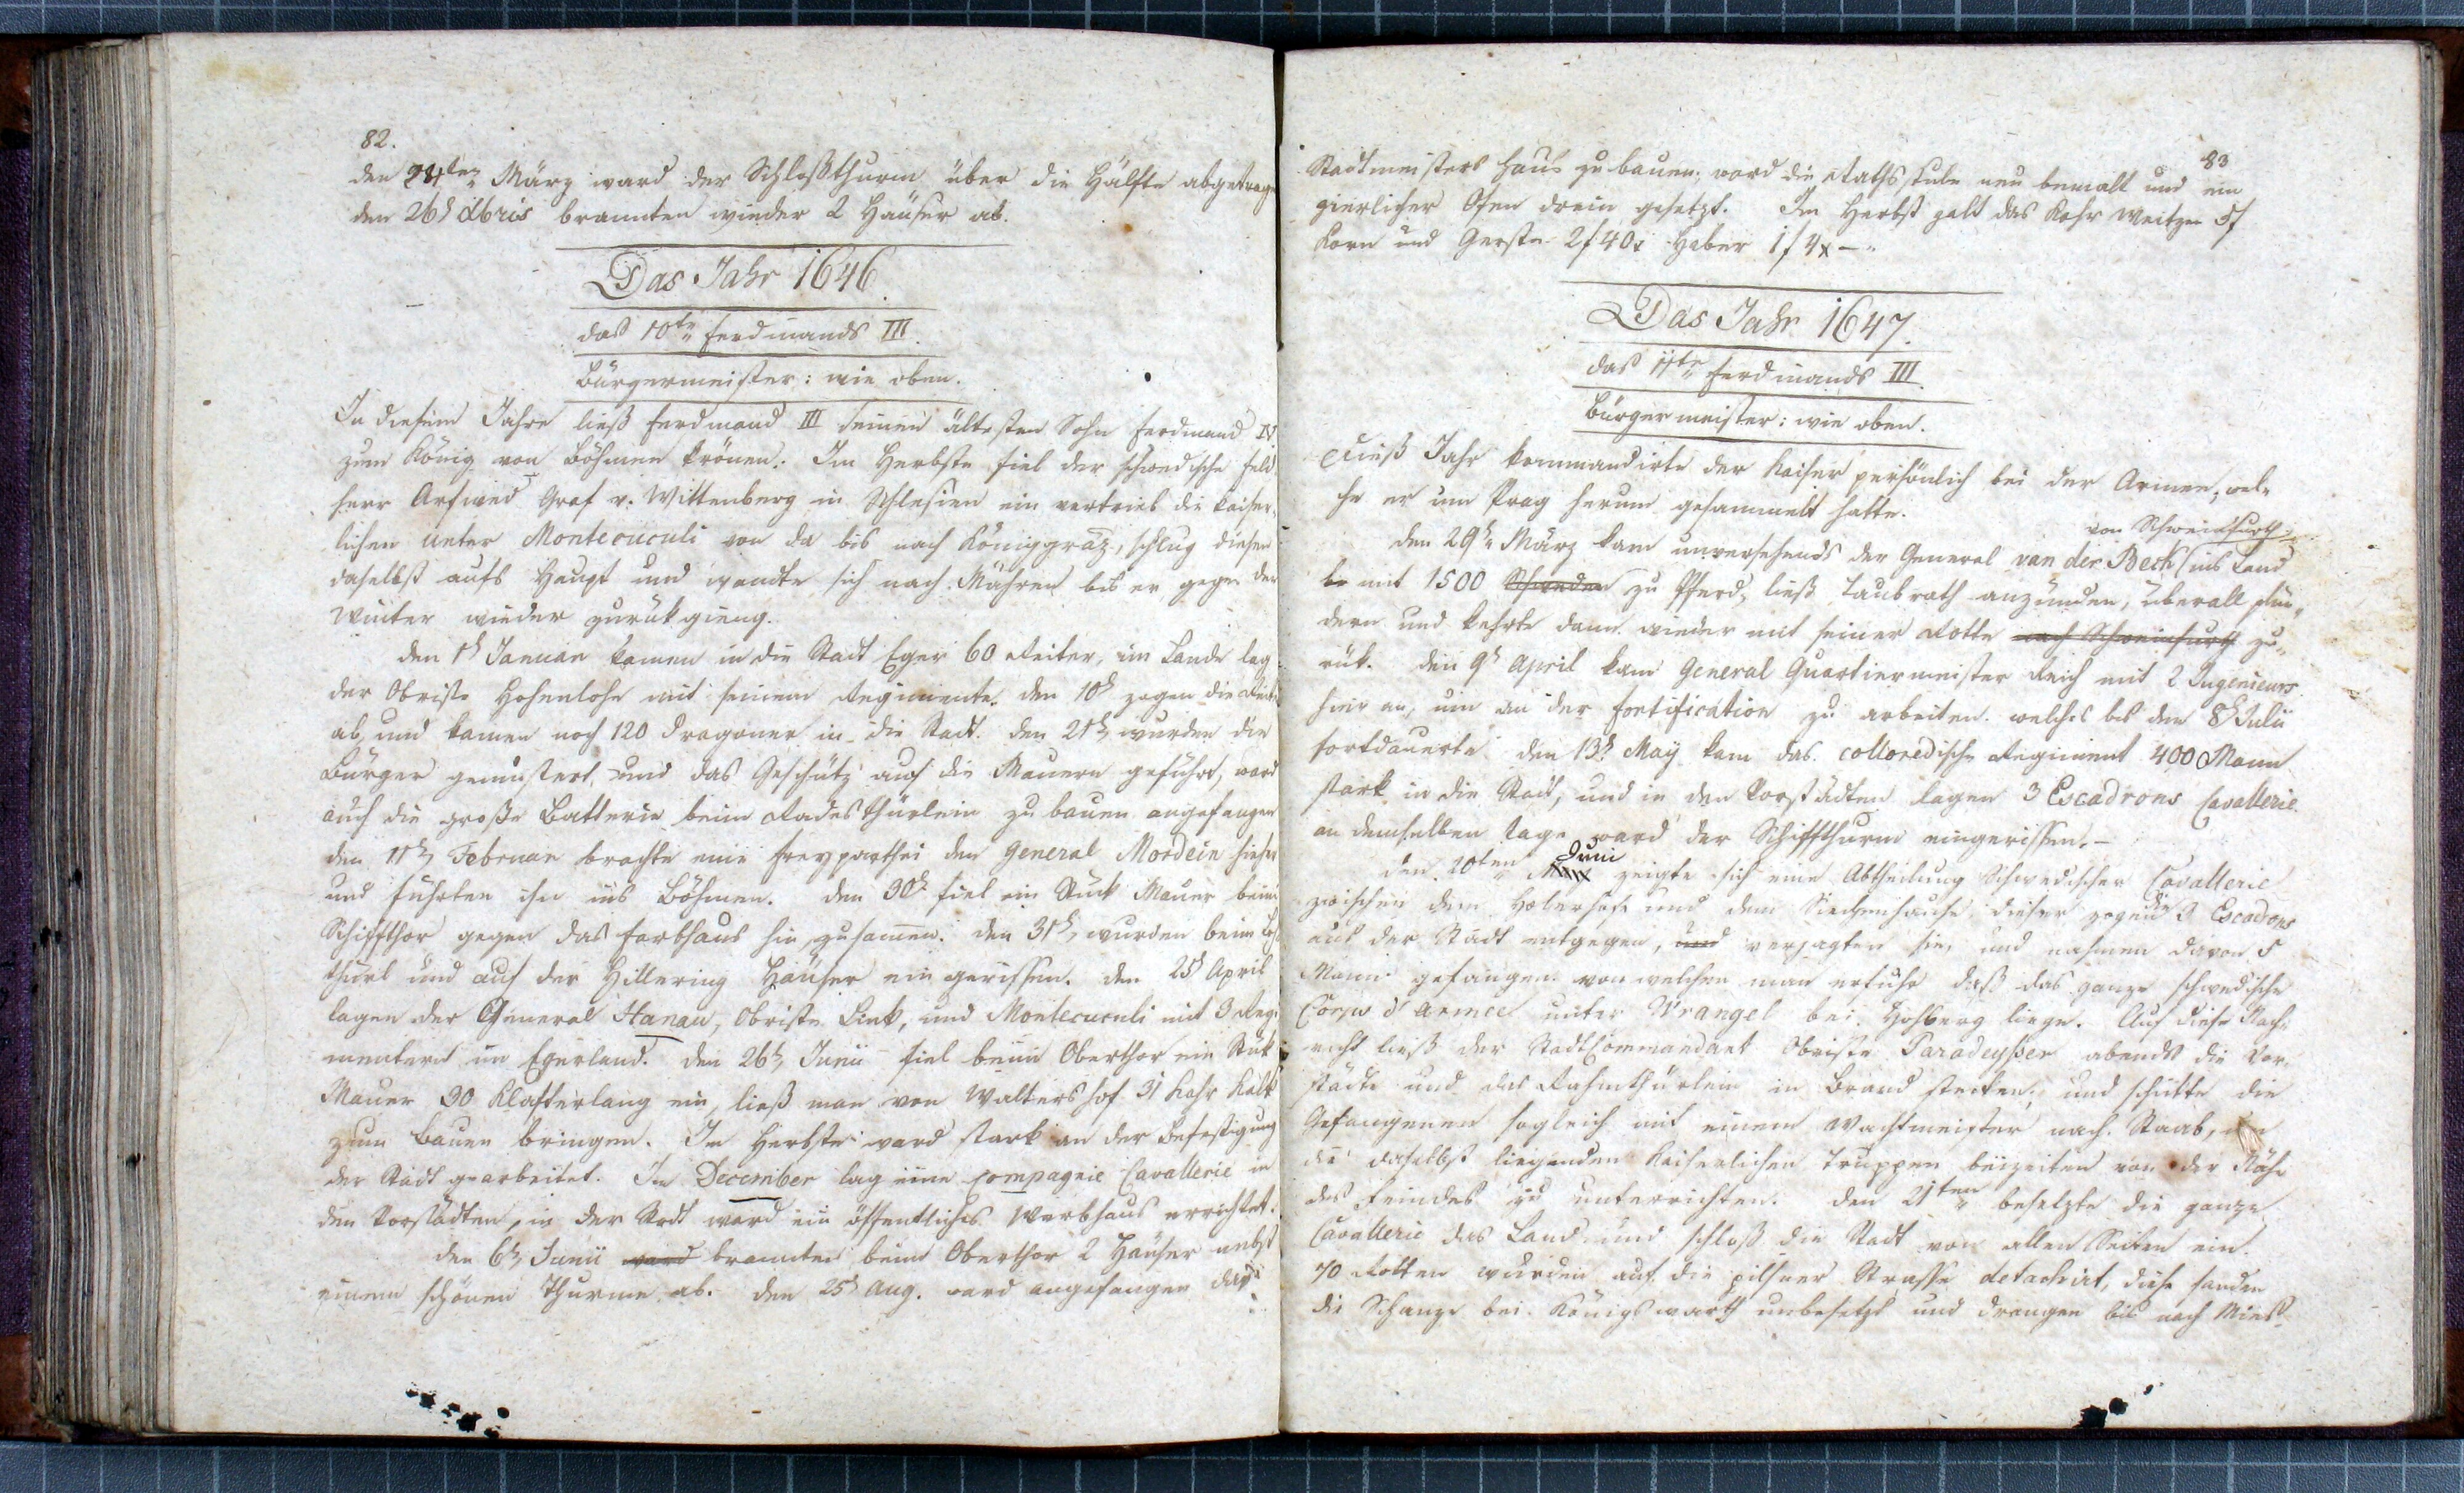 82.
den 24ten März ward der Schloßthurm über die Hälfte abgetrage
den 26t Xbris brannten wieder 2 Häuser ab.
Das Jahr 1646.
das 10te Ferdinands III.
Bürgermeister: wie oben.
In diesem Jahre ließ Ferdinand III seinen ältesten Sohn Ferdinand IV.
zum König von Böhmen krönen. Im Herbste fiel der schwedische Feld
herr Arfwed Graf v. Wittenberg in Schlesien ein vertrieb die Kaiser-
lichen unter Montecuculi von da bis nach Königgräz, schlug diesen
daselbst aufs Haupt und wandte sich nach Mähren bis er gegen den
Winter wieder zurükgieng.
den 1t Januar kamen in die Stadt Eger 60 Reiter, im Lande lag
der Obriste Hohenlohe mit seinem Regimente. den 10t zogen die Reite
ab, und kamen noch 120 Dragoner in die Stadt. den 21t wurden die
Bürger gemustert, und das Geschütz auf die Mauern geführt, ward
auch die große Batterie beim Radesthürlein zu bauen angefangen
den 11t Februar brachte eine Freyparthei den General Mordein hieher
und führten ihn ins Böhmen. den 30t fiel ein Stück Mauer beim
Schiffthor gegen das Farbhaus hin, zusamen. den 31t wurden beim
thürl und auf der Hillering Häuser eingerissen. den 25t April
lagen der General Hanau, Obriste Link, und Montecuculi mit 3 Regi
mentern im Egerland. den 26t Junii fiel beim Oberthor ein Stük
Mauer 30 Klafterlang ein, ließ man von Waltershof 31 Kahr Kalk
zum Bauen bringen. Im Herbste ward stark an der Befestigung
der Stadt gearbeitet. Im December lag eine Compagnie Cavallerie in
den Vorstädten, in der Stadt ward ein öffentliches Werbhaus errichtet.
den 6t Junii ward brannten beim Oberthor 2 Häuser nebst
einem schönen Thurme ab. den 25t Aug. ward angefangen das
83
Stadtmeisters Haus zu bauen, ward die Rathsstube neu bemalt und ein
zierlicher Ofen darein gesetzt. Im Herbst galt das Kahr Weitzen 5f
Korn und Gerste 2f 40x Haber 1f 4x —
Das Jahr 1647.
das 11te Ferdinands III.
Bürgermeister: wie oben.
Dieß Jahr kommandirte der Kaiser persönlich bei der Armee, wel-
che er um Prag herum gesammelt hatte.
von Schweinfurth
den 29t März kam unversehends der General van der Beck ins Land
be mit 1500 Schweden zu Pferd, ließ Taubrath anzünden, überall plün-
dern und kehrte dann wieder mit seiner Rotte nach Schweinfurth zu-
rük. den 9t April kam General Quartiermeister Reich mit 2 Ingenieurs
hier an, um an der Fortification zu arbeiten. welches bis den 8t Julii
fortdauerte den 13t May kam das colloredische Regiment 400 Mann
stark in die Stadt, und in den Vorstädten lagen 3 Escadrons Cavallerie
an demselben Tage ward der Schiffthurm eingerissen. —
Juni
den 20ten zeigte sich eine Abtheilung Schwedischer Cavallerie
zwischen dem Haberhofe und dem Siechenhause, dieser zogen die 3 Escadons
aus der Stadt entgegen, und verjagten sie, und nahmen davon 5
Mann gefangen von welchen man erfuhr daß das ganze schwedische
Corps d'armee unter Wrangel bei Hohberg liege. Auf diese Nach-
richt ließ der StadtCommandant Obriste Paradeyßer abends die Vor-
städte und das Rahmthürlein in Brand stecken, und schikte die
Gefangenen sogleich mit einem Wachtmeister nach Staab, um
die daselbst liegenden Kaiserlichen Truppen beizeiten von der Nähe
des Feindes zu unterrichten. den 21ten besetzte die ganze
Cavallerie das Land und schloß die Stadt von allen Seiten ein.
70 Rotten wurden auf die pilsner Strasse detachirt, diese fanden
die Schanze bei Königswarth unbesetzt und drangen bis nach Mies